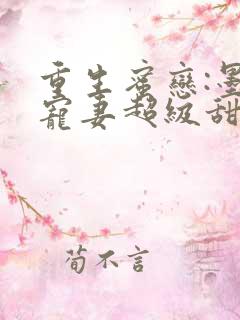 重生蜜戀:墨
寵妻超級甜
荀不言